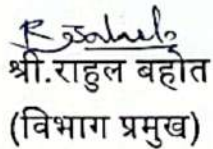 श्री.राहुल बहोत
(विभाग प्रमुख)